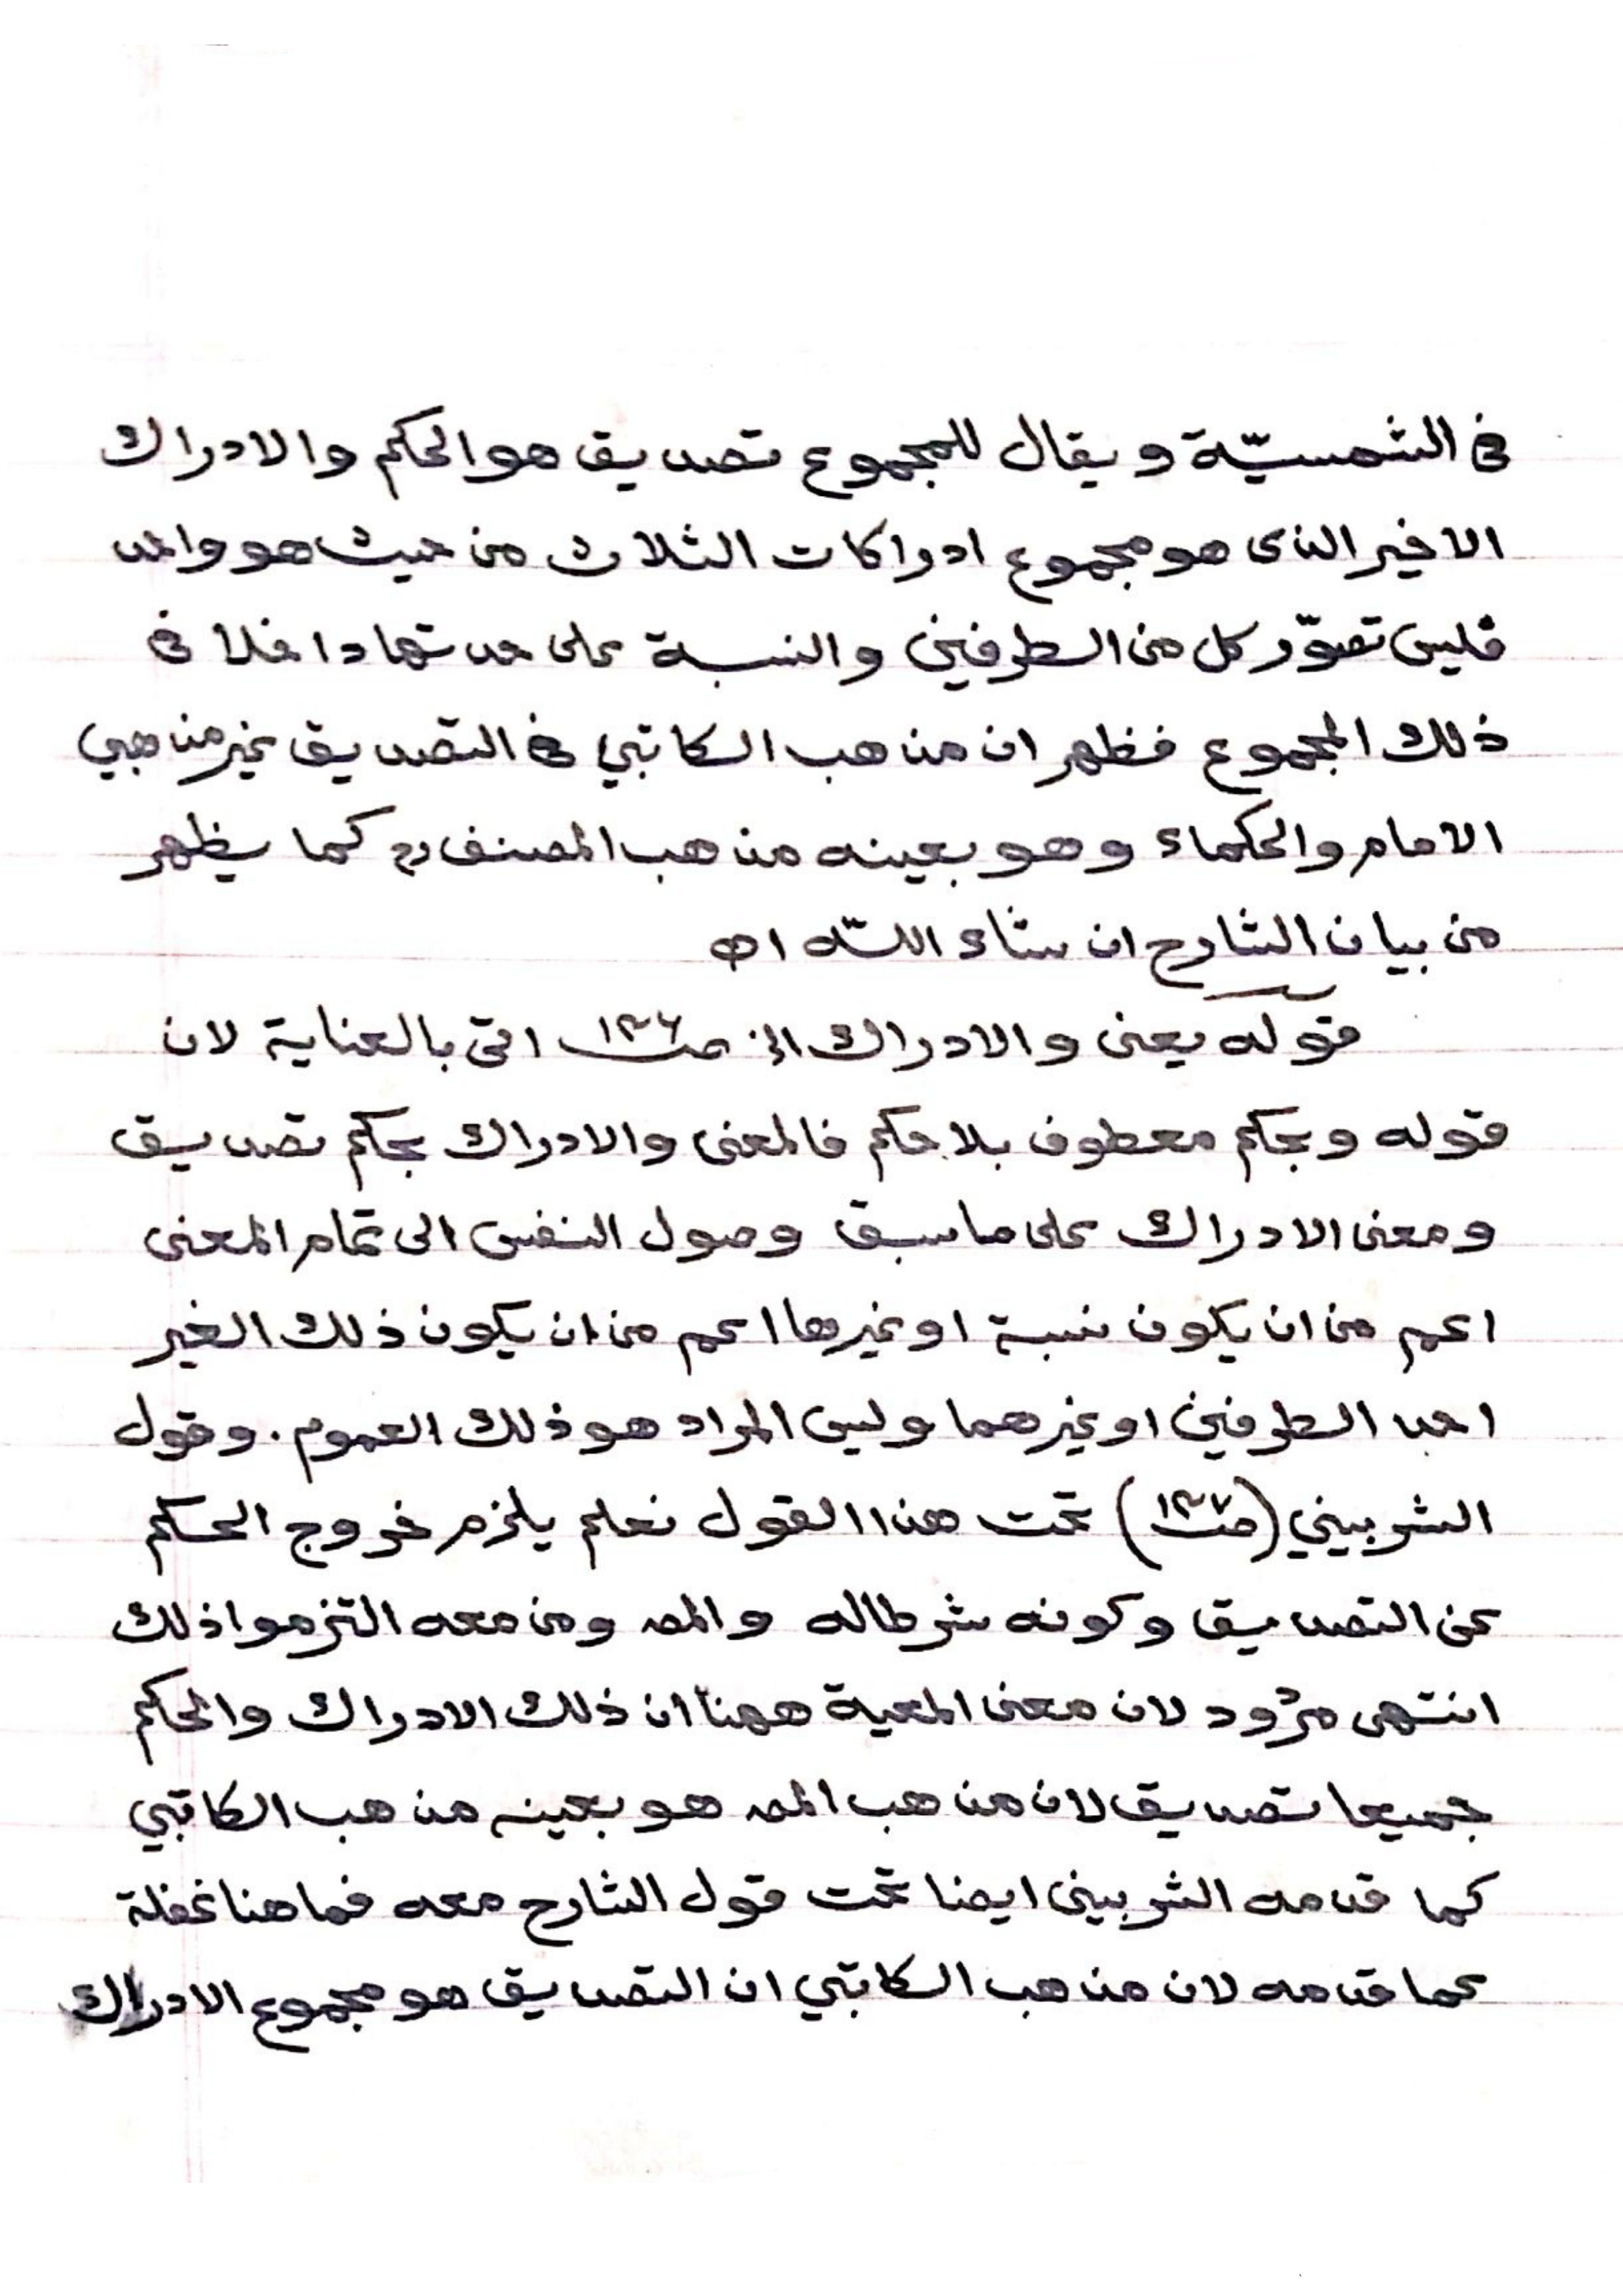 فى الشمسيّة ويقال للمجموع تصديق هو الحكم والادراك
الاخير الذى هو مجموع ادراكات الثلاث من حيث هو واحد
فليس تصوّر كل من الطرفين والنسبة على حدتها داخلا فى
ذلك المجموع فظهر ان مذهب الكاتبي فى التصديق غير مذهبي
الامام والحكماء وهو بعينه مذهب المصنف رح كما يظهر
من بيان الشارح ان شاء اللّه اھ
قوله يعنى والادراك الخ صـ١٤٦ اتى بالعناية لان
قوله وبحكم معطوف بلا حكم فالمعنى والادراك بحكم تصديق
ومعنى الادراك على ما سبق وصول النفس الى تمام المعنى
اعم من ان يكون نسبة او غيرها اعم من ان يكون ذلك الغير
احد الطرفين او غيرهما وليس المراد هو ذلك العموم. وقول
الشربيني (صـ١٤٧) تحت هذا القول نعلم يلزم خروج الحكم
عن التصديق وكونه شرطا له والمصـ ومن معه التزموا ذلك
انتهى مردود لان معنى المعية ههنا ان ذلك الادراك والحكم
جميعا تصديق لان مذهب المصـ هو بعينه مذهب الكاتبي
كما قدمه الشربينى ايضا تحت قول الشارح معه فما هنا غفلة
عما قدمه لان مذهب الكاتبي ان التصديق هو مجموع الادراك